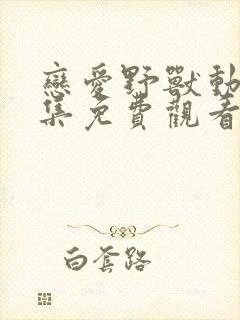 戀愛野獸動
集免費觀看
白套路